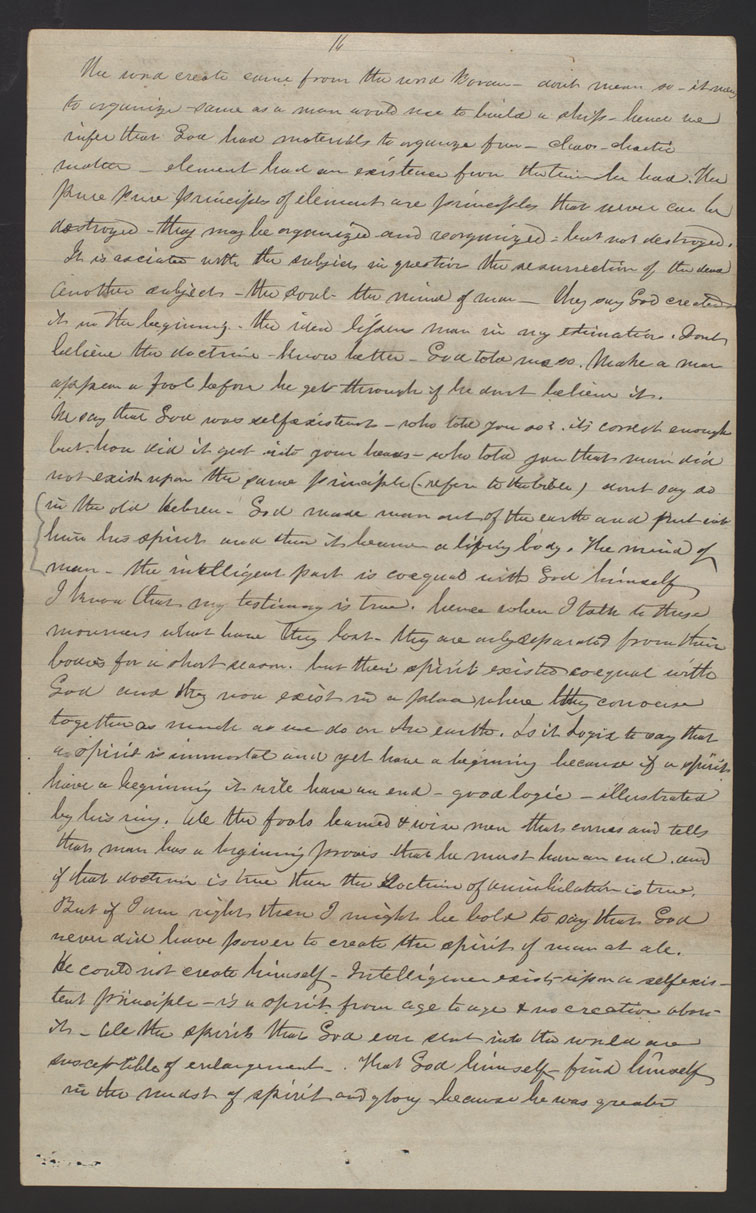 16
The word create came from the word Borau - dont mean so - it means
to organize - same as a man would use to build a ship - hence we
infer that God had materials to organize from - chaos - chaotic
matter - element had an existence from the time he had. The
pure pure principles of element are principles that never can be
destroyed - they may be organized and reorganized = but not destroyed.
It is associated with the subject in question the resurrection of the dead
another subject - the soul - the mind of man - they say God created
it in the beginning. the idea lessens man in my estimation. Dont
believe the doctrine - know better - God told me so. Make a man
appear a fool before he gets through if he dont believe it.
We say that God was self existent - who told you so? its correct enough
but how did it get into your heads - who told you that man did
not exist upon the same principle (refer to the bible) dont say so
in the old Hebrew - God made man out of the earth and put into
him his spirit and then it became a living body. The mind of
man - the intelligent part is coequal with God himself
I know that my testimony is true. hence when I talk to these
mourners what have they lost - they are only separated from their
bodies for a short season. but their spirit existed coequal with
God and they now exist in a place where they converse
together as much as we do on the earth. Is it Logic to say that
a spirit is immortal and yet have a beginning because if a spirit
have a beginning it will have an end - good logic - illustrated
by his ring. All the fools learned & wise men that comes and tells
that man has a beginning proves that he must have an end. and
if that doctrine is true then the Doctrine of annihilation is true.
But if I am right then I might be bold to say that God
never did have power to create the spirit of man at all.
He could not create himself - Intelligence exists upon a selfexis-
tent principle - is a spirit from age to age & no creation about
it - All the spirits that God ever sent into the world are
susceptible of enlargement - . That God himself - find himself
in the midst of spirit and glory because he was greater